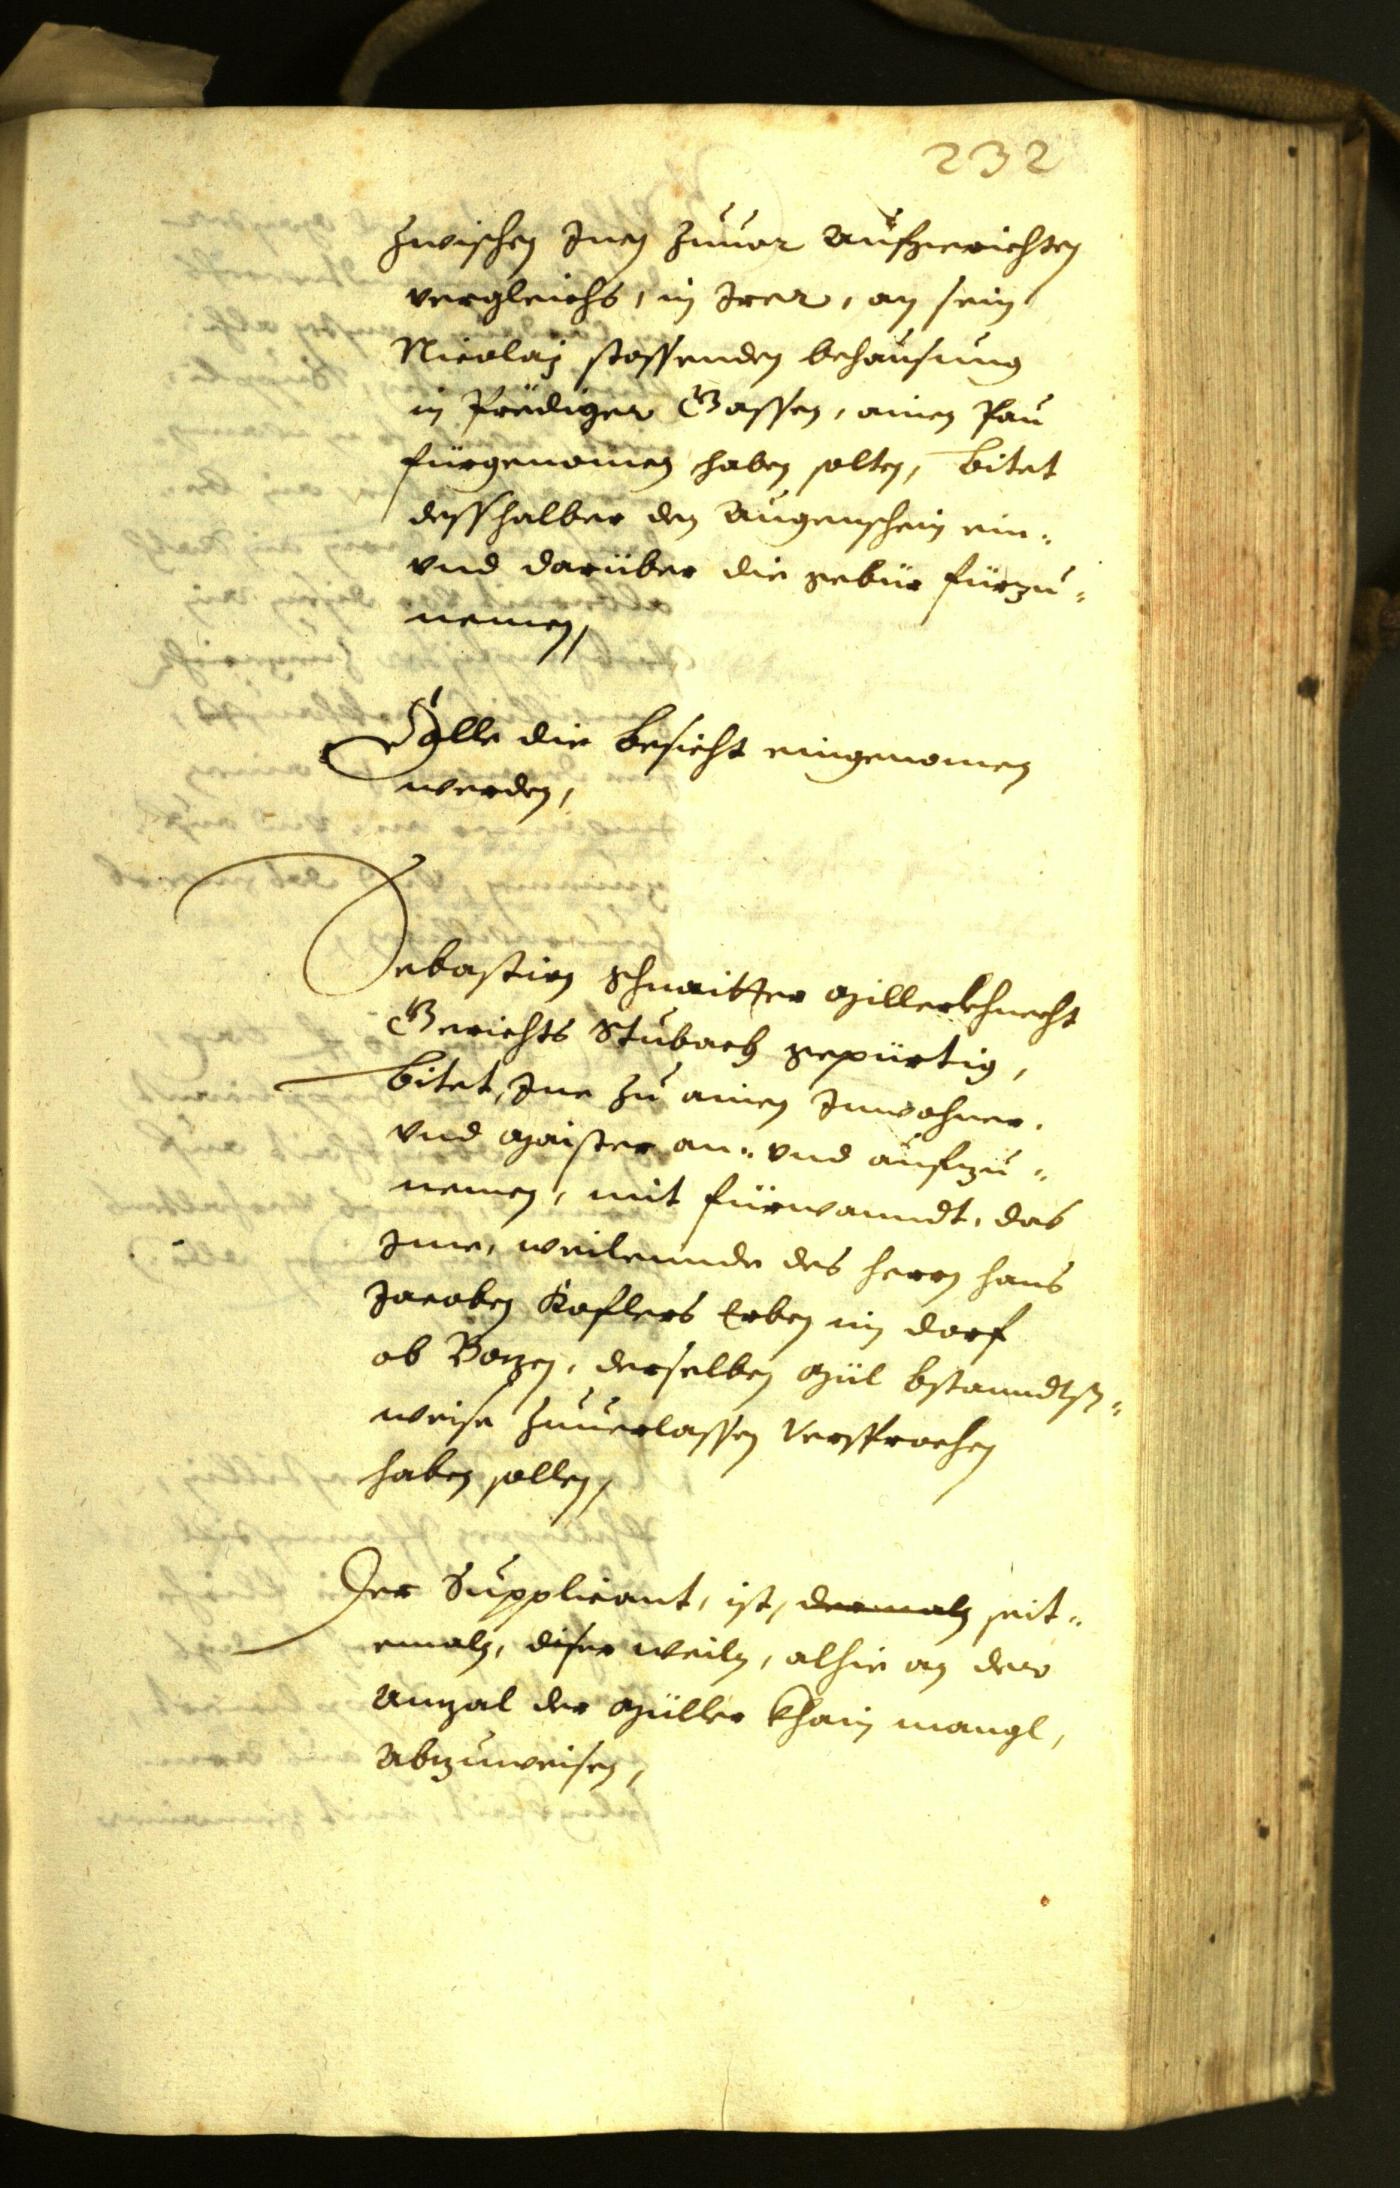 232
zwischen Inen zuuor aufgerichten
vergleichs, in Irer, an sein
Nicolaj stossenden behausung
in Prediger Gassen, ainen Pau
fürgenomen haben solten, bitet
desshalber den Augenschein ein-
vnd darüber die gebür fürzu-
nemen,
Solle die besicht eingenomen
werden,
Sebastian Schnaitter Millerkhnecht
Gerichts Stubach gepürtig,
bitet, Ine zu ainen Inwohner,
vnd Maister an- vnd aufzu-
nemen, mit fürwanndt, das
Ime, weilennde des herrn hans
Jacoben Koflers Erben im dorf
ob Bozen, derselben Mül bstanndtß-
weise zuuerlassen versprochen
haben sollen,
Der Supplicant, ist, dermaln seit-
emaln, diser weiln, alhie an der
Anzal der Müller khain mangl,
Abzuweisen,